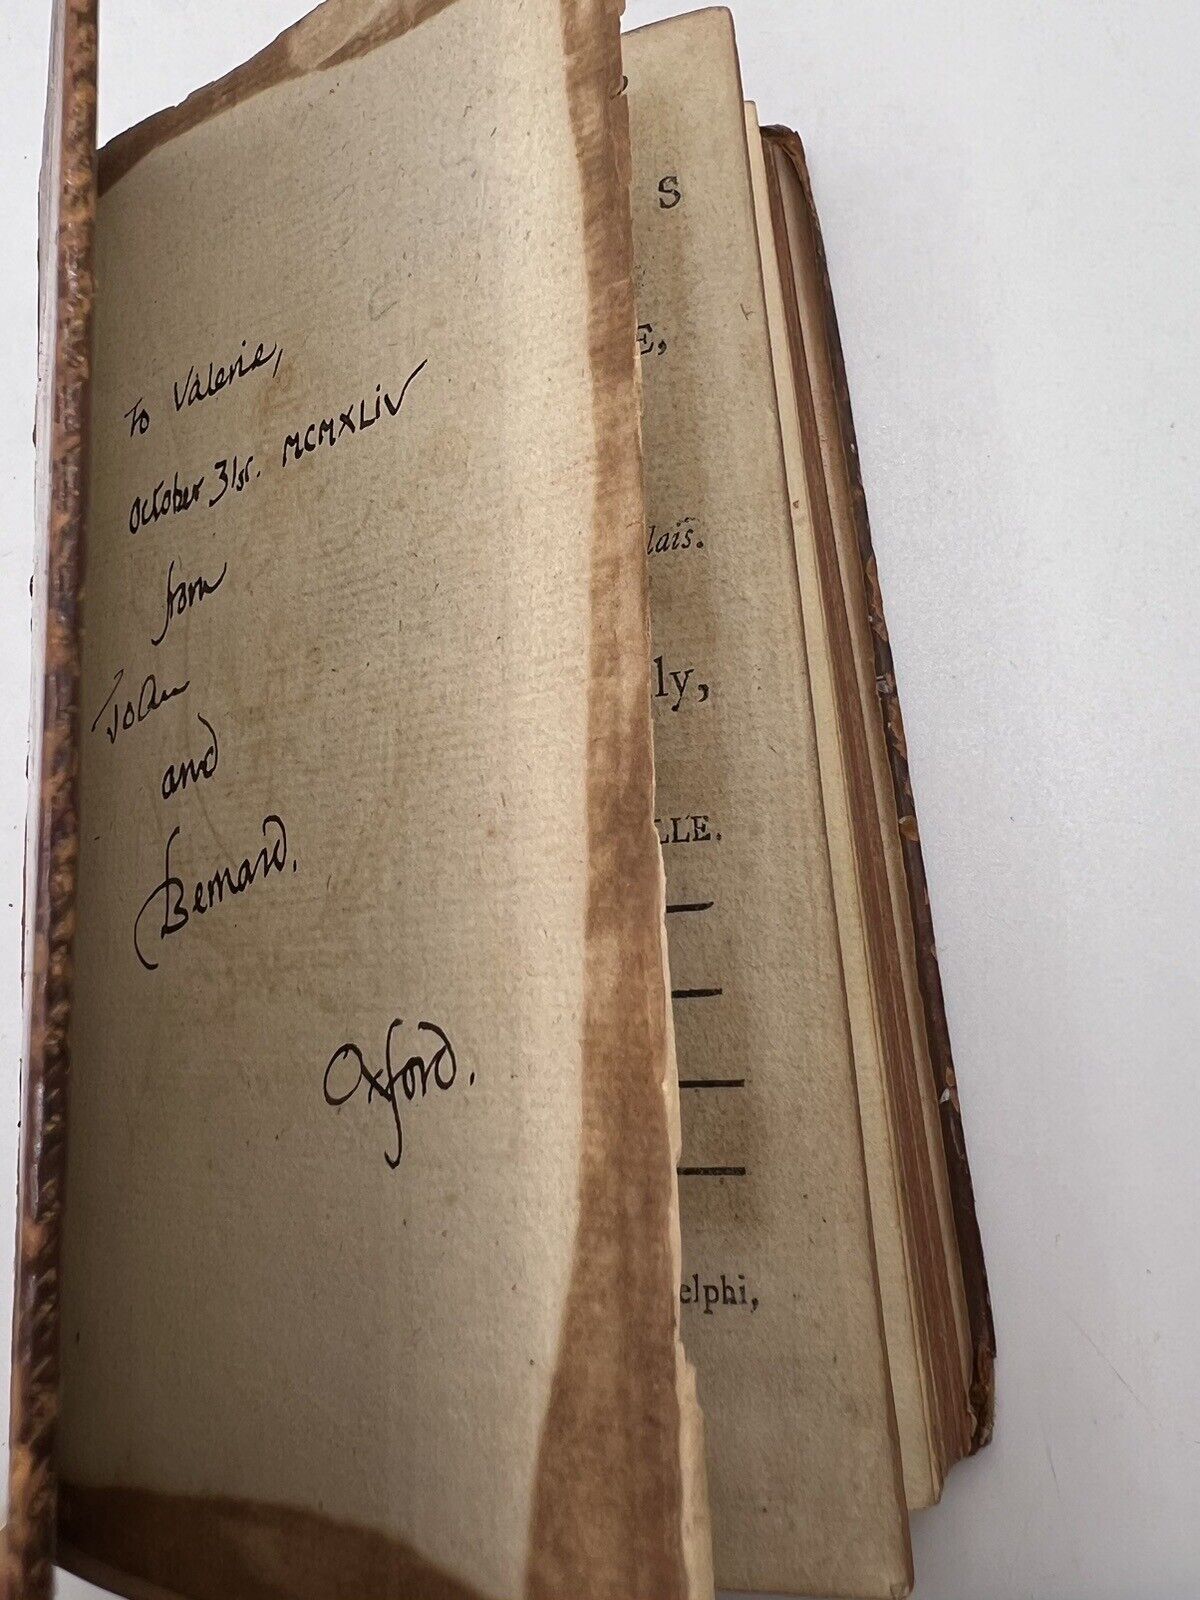 To Valerie,
October 31st. MCMXLIV
from
Joan
and
Bernard.
Oxford.
S
E,
lais.
ly,
LLE.
elphi,